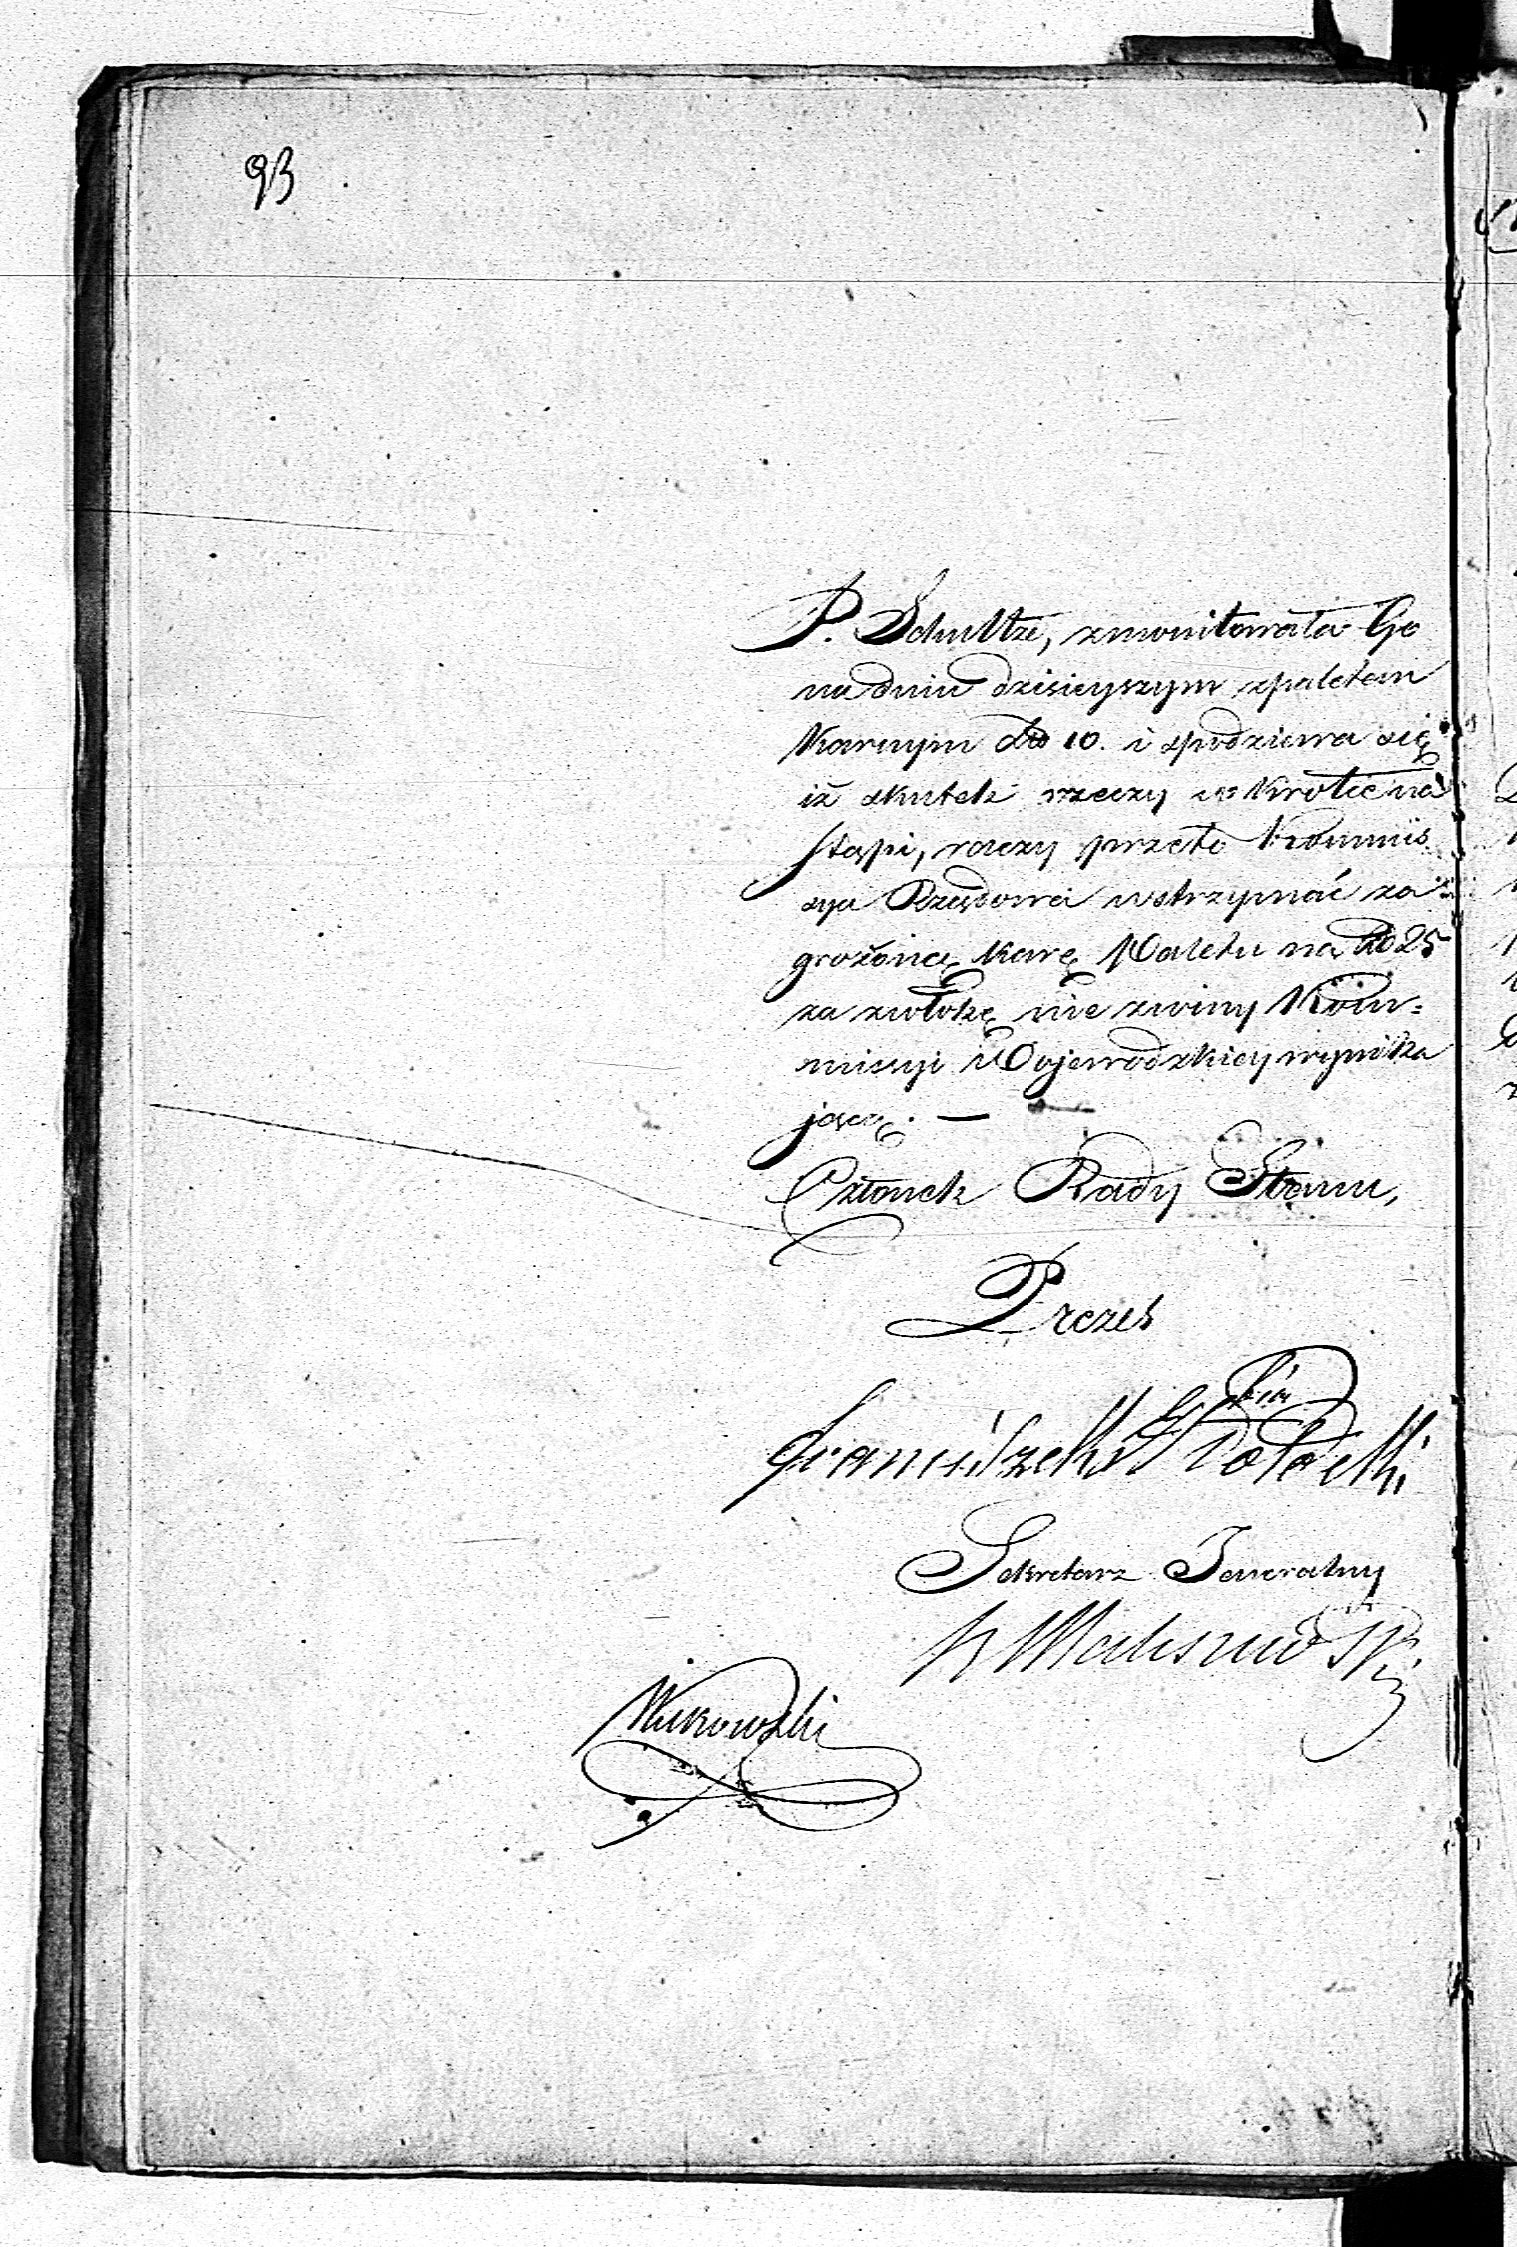 93
P. Schultze, zmonitowała Go
na dniu dzisieyszym zpaletem
karnym złp 10. i spodziewa się
iż skutek rzeczy wkrotce na
stąpi, raczy przeto Kommis
sya Rządowa wstrzymać za
grożoną karę Paletu na złp 25
za zwłokę nie zwiny Kom-
missyi Woiewodzkiey wynika
jącą. —
Członek Rady Stanu,
Prezes
Franciszek
Sekretarz Jeneralny